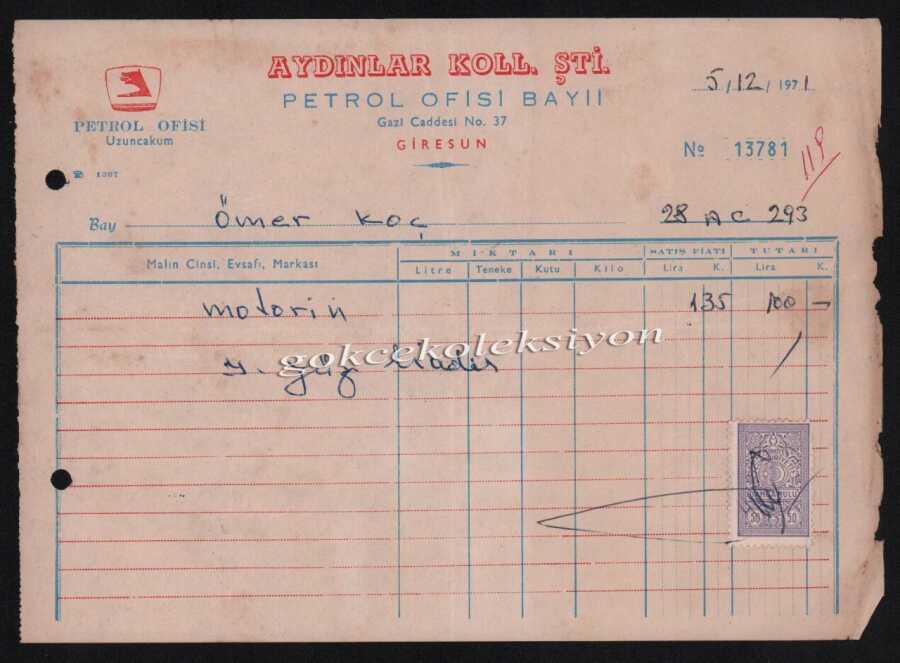 AYDINLAR KOLL. ŞTİ.
PETROL OFİSİ BAYII
Gazi Caddesi No. 37
GİRESUN
PETROL OFİSİ
Uzuncakum
☎ 1307
5/12/1971
No 13781
119
Bay Ömer Koç 28 AC 293
Malın Cinsi, Evsafı, Markası
MİKTARI
SATIŞ FİATI
TUTARI
Litre Teneke Kutu Kilo Lira K. Lira K.
motorin 135 100 —
gokcekoleksiyon
y. Yüz liradır
50 50